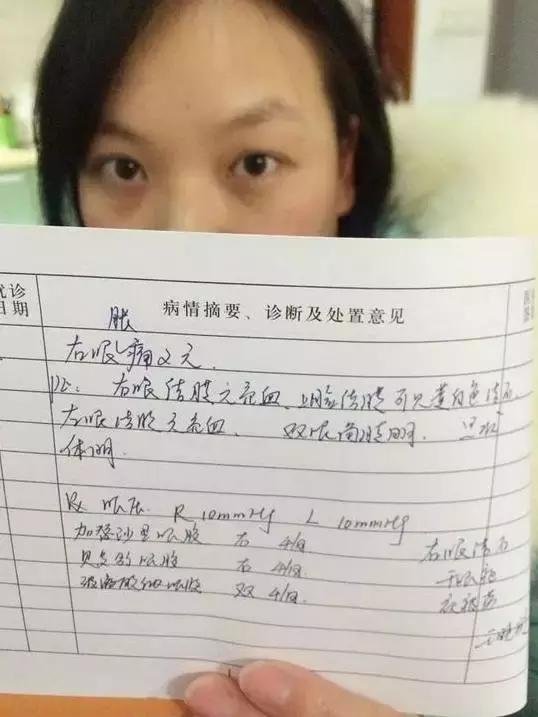 就诊
日期
病情摘要、诊断及处置意见
胀
右眼痛2天.
PE: 右眼结膜无充血、上睑结膜可见黄白色结石
左眼结膜无充血、 双眼角膜明.
体明.
Rx 眼压 R 10mmHg L 10mmHg
加替沙星眼胶 右 4/日
贝复舒眼胶 右 4/日
玻璃酸钠眼胶 双 4/日
右眼结石
干眼症